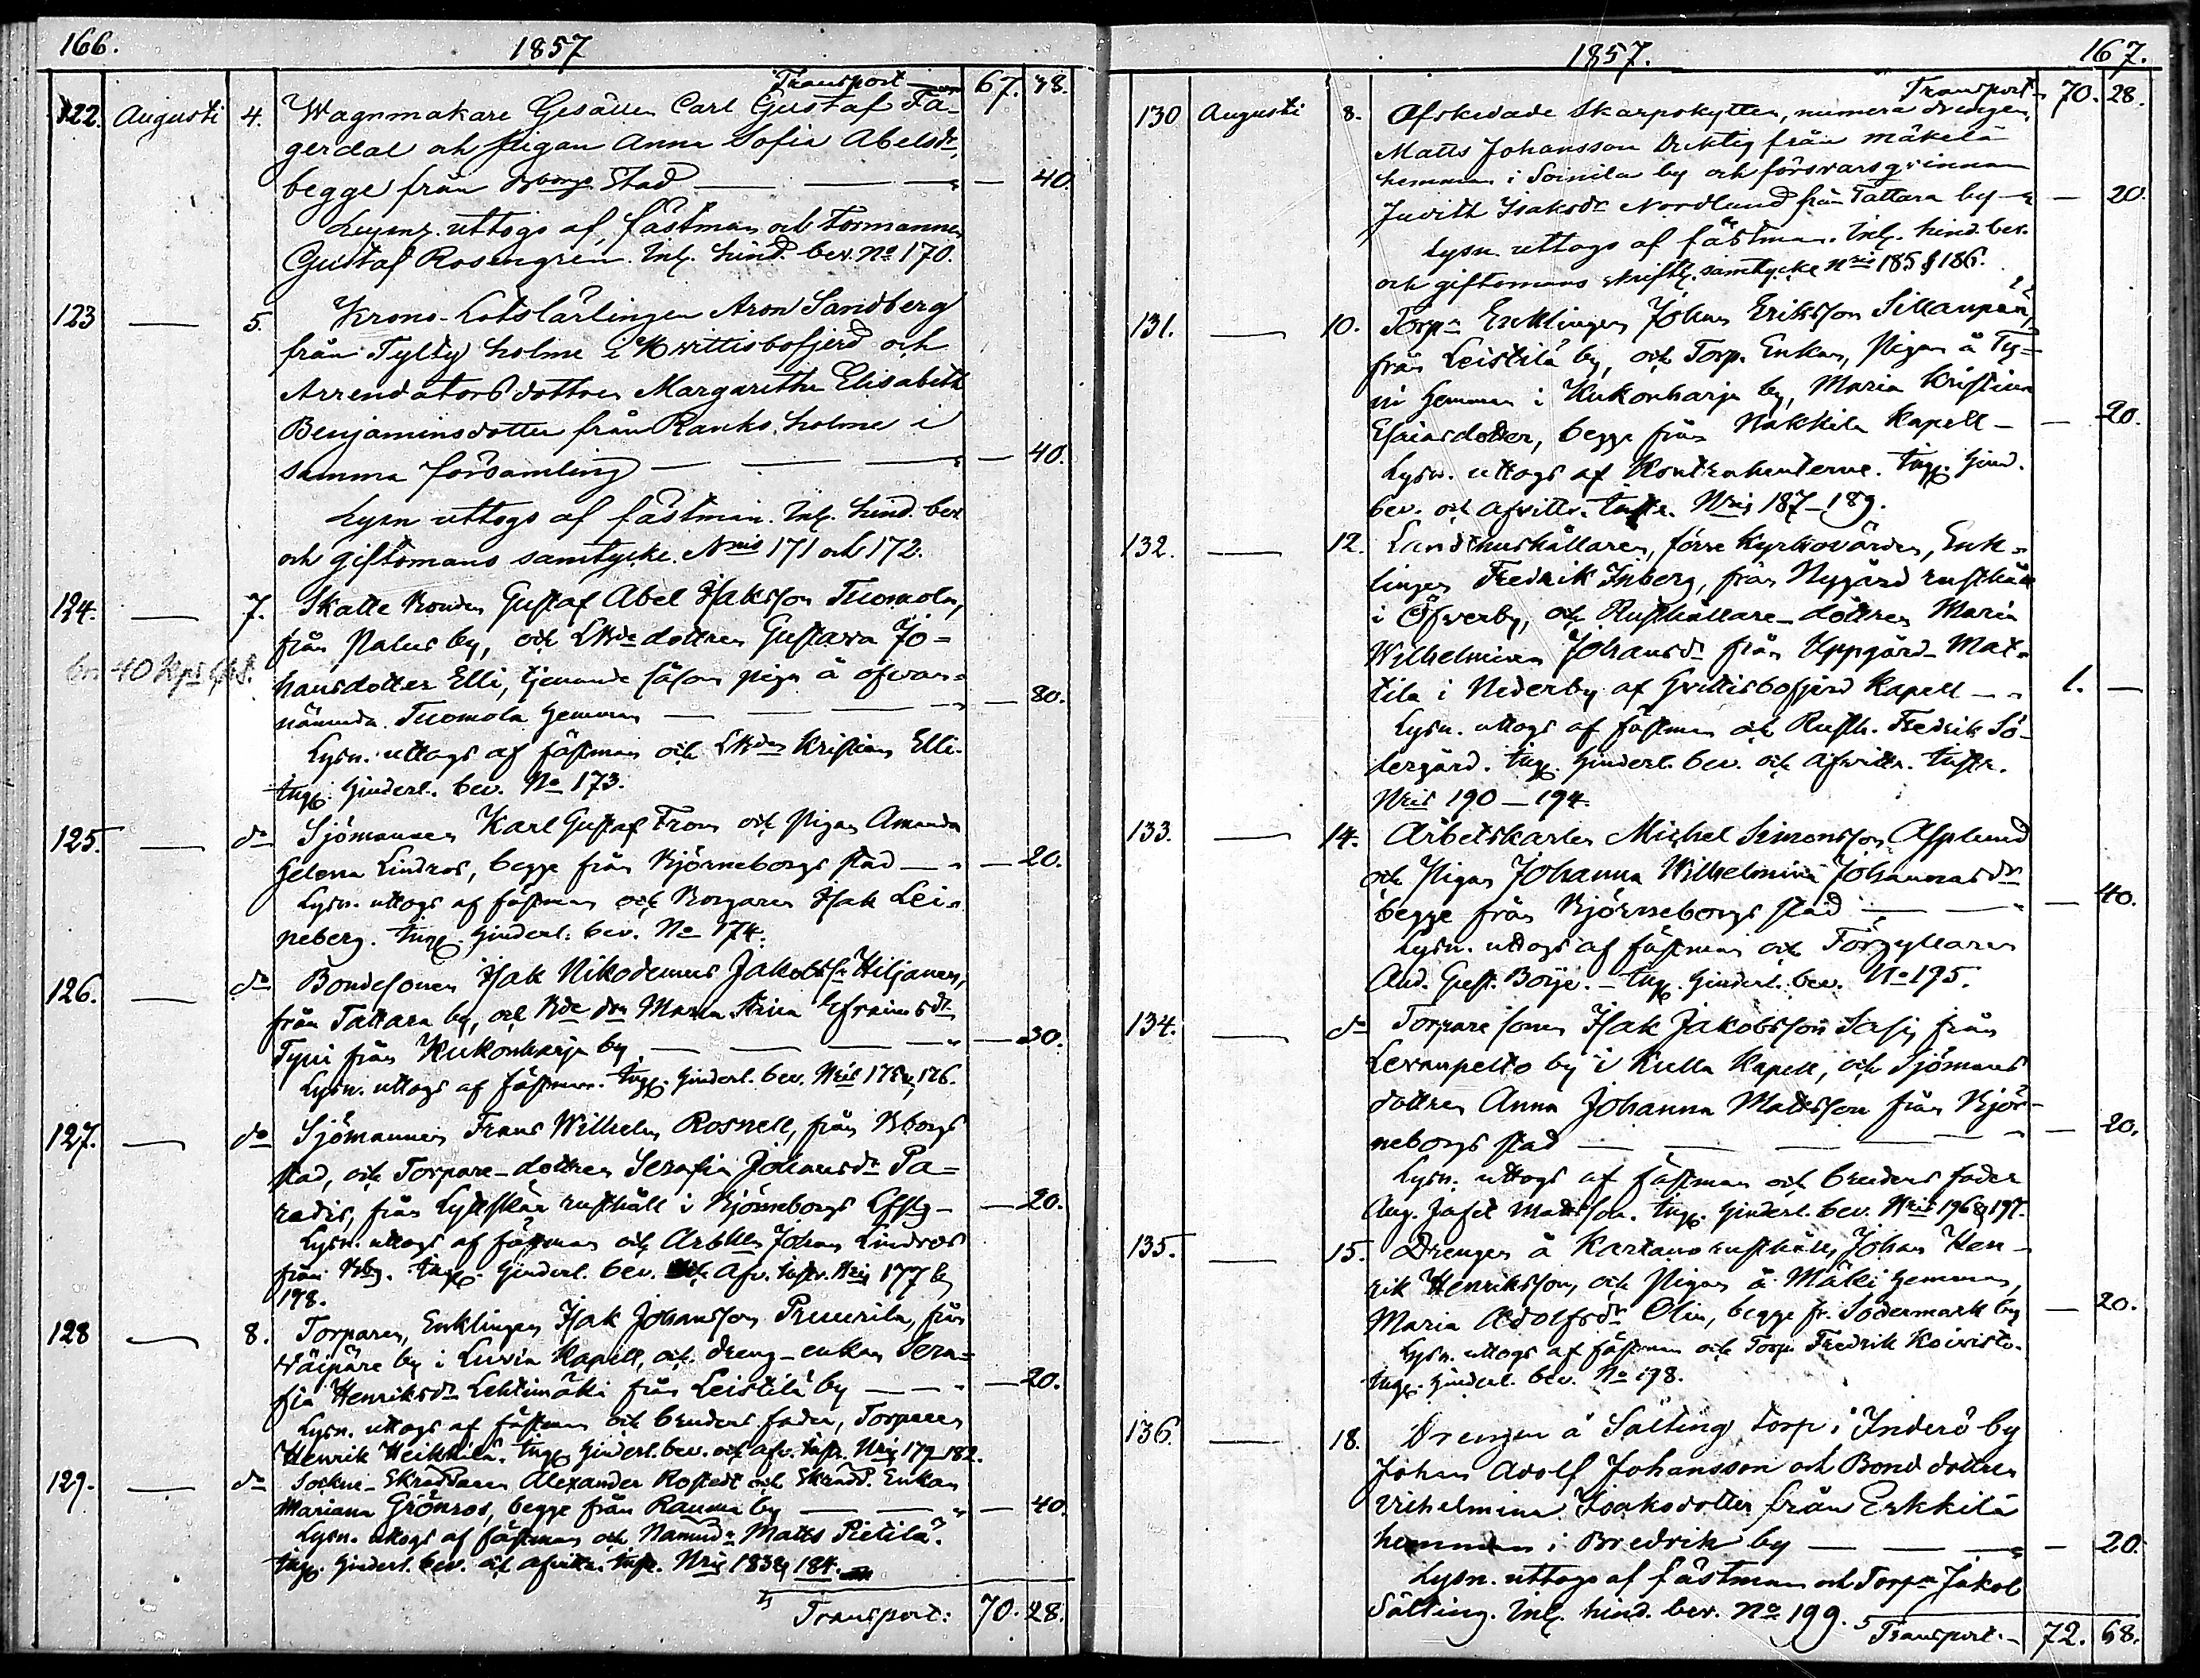 166.
1857
Transport — 67. 38.
122. Augusti 4. Wagnmakare Gesällen Carl Gustaf Fa-
gerdal och pigan Anna Sofia Abelsdr,
begge från Bborgs Stad — — — 40.
Lysng. uttogs af fästman och Formannen
Gustaf Rosengren. Inl. hind. bev. No 170.
123 — 5. Krono-Lotslärlingen Aron Sandberg
från Tylty holme i Hvittisbofjerd och
Arrendatorsdottren Margaretha Elisabeth
Benjaminsdotter från Ranko holme i
samma församling — — — 40.
Lysn uttogs af fästman. Inl. hind. bev.
och giftomans samtycke. Nris 171 och 172.
124. — 7. Skatte Bonden Gustaf Abel Isaksson Tuomola,
från Palus by, och LBde dottren Gustava Jo-
40 Kps
hansdotter Elli, tjenande såsom piga å ofvan-
nämnda Tuomola hemman — — — 80.
Lysn. uttogs af fästman och LBden Kristian Elli.
Ingg. hinderl. bev. No 173.
125. — do Sjömannen Karl Gustaf From och Pigan Amanda
Helena Lindros, begge från Björneborgs stad — — 20.
Lysn. uttogs af fästman och Borgaren Isak Lei-
neberg. Ingg. hinderl. bev. No 174.
126. — do Bondesonen Isak Nikodemus Jakobss. Hiljanen,
från Tattara by, och Bde dn Maria Stina Efraimsdr
Typi från Kukonharja by — — — 30.
Lysn. uttogs af fästman. Ingg. hinderl. bev. Nris 175 & 176.
127. — do Sjömannen Frans Wilhelm Rosnell, från Bborgs
stad, och Torpare-dottren Serafia Johansdr Pa-
radis, från Lyttskär rusthåll i Björneborgs Lfsg — — 20.
Lysn. uttogs af fästman och Arbkln Johan Lindros
från Bbg. Ingg. hinderl. bev. och Afv. instr. Nris 177 &
178.
128 — 8. Torparen, Enklingen Isak Johansson Pruurila, från
Wäipäre by i Luvia Kapell, och dreng-enkan Sera-
fia Henriksdr Lehtimäki från Leistilä by — — — 20.
Lysn. uttogs af fästman och brudens fader, Torparen
Henrik Heikkilä. Ingg. hinderl. bev. och afv. instr. Nris 179–182.
129. — do Sockne-Skräddaren Alexander Rostedt och Skrädd. Enkan
Mariana Grönros, begge från Rauma by — — 40.
Lysn. uttogs af fästman och Nämnd. Matts Pietilä.
Ingg. hinderl. bev. och afvittr. instr. Nris 183 & 184.
Transport: 70. 28.
1857. 167.
Transport 70. 28.
130 Augusti 8. Afskedade Skarpskytten, numera drengen,
Matts Johansson Duktig från Mäkelä
hemman i Soinila by och försvarsqvinnan
Judith Isaksdr Nordlund från Tattara by — 20.
Lysn. uttogs af fästman. Inl. hind. bev.
och giftomans skriftl. samtycke Nris 185 & 186.
131. — 10. Torpn Enklingen Johan Eriksson Sillanpää,
från Leistilä by, och Torp. Enkan, Pigan å Ty-
ni hemman i Kukonharja by, Maria Kristina
Esaiasdotter, begge från Nakkila Kapell — — 20.
Lysn. uttogs af Kontrahenterne. Ingg. hind.
bev. och afvittr. instr. Nris 187–189.
132. — 12. Landthushållaren, förre Kyrkovärden, Enk-
lingen Fredrik Inberg, från Nygård rusthåll
i Öfverby, och Rusthållare-dottren Maria
Wilhelmina Johansdr från Uppgård Mat-
tila i Nederby af Hvittisbofjerd Kapell — — 1. —
Lysn. uttogs af fästman och Rusth. Fredrik Sö-
dergård. Ingg. hinderl. bev. och afvittr. instr.
Nris 190–194.
133. — 14. Arbetskarlen Michel Simonsson Asplund
och Pigan Johanna Wilhelmina Johannasdr
begge från Björneborgs stad — — — 40.
Lysn. uttogs af fästman och Förgyllaren
And. Gust. Börje. — Ingg. hinderl. bev. No 195.
134. — do Torpare sonen Isak Jakobsson Sasy från
Levanpelto by i Kulla Kapell, och Sjömans
dottren Anna Johanna Mattsson från Björ-
neborgs stad — — — — 20.
Lysn. uttogs af fästman och brudens fader
Aug. Jafet Mattsson. Ingg. hinderl. bev. Nris 196 & 197.
135. — 15. Drengen å Kartano rusthåll, Johan Hen-
rik Henriksson, och Pigan å Mäki hemman,
Maria Adolfsdr Olin, begge fr. Södermark by — 20.
Lysn. uttogs af fästman och Torp. Fredrik Koivisto.
Ingg. hinderl. bev. No 198.
136. — 18. Drengen å Sälting torp i Inderö by
Johan Adolf Johansson och Bond dottren
Vilhelmina Isaksdotter från Erkkilä
hemman i Bredvik by — — — 20.
Lysn. uttogs af fästman och Torpn Jakob
Sälting. Inl. hind. bev. No 199.
Transport. — 72. 68.